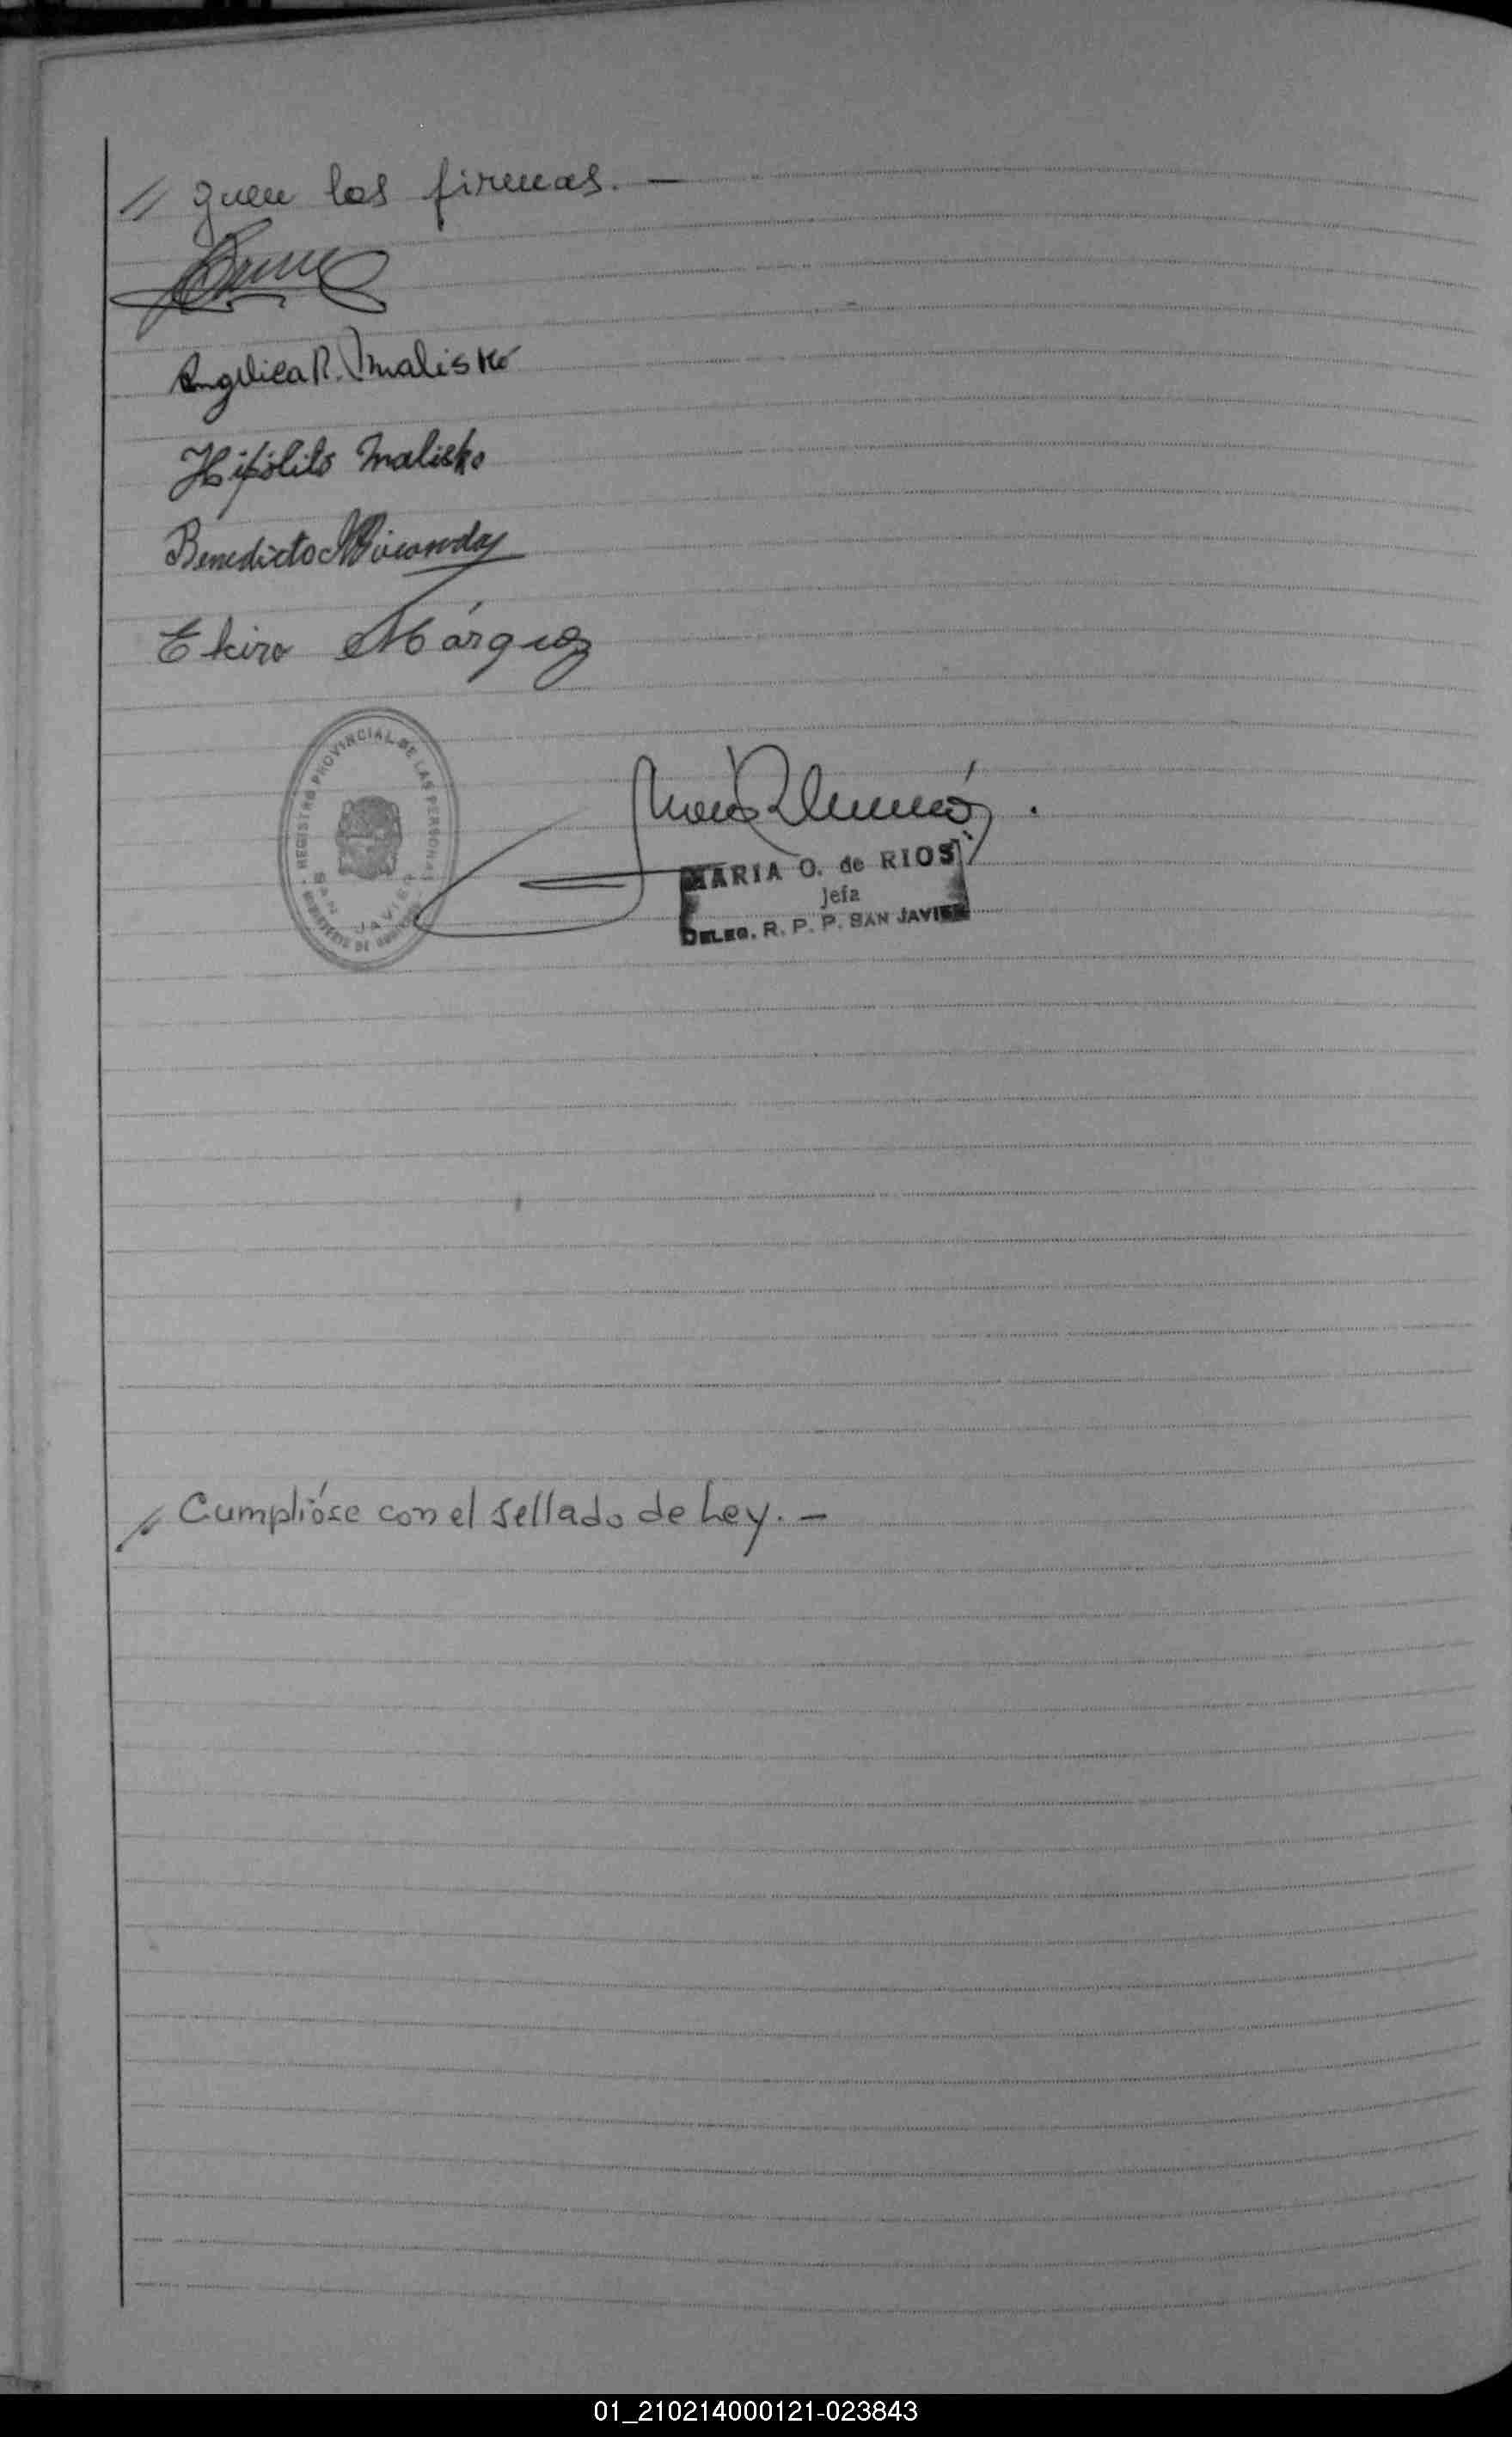 // guen las firmas. —
Angelica R. Malisko
Hipólito Malisko
Benedicto Miranda
Márquez
REGISTRO PROVINCIAL DE LAS PERSONAS
SAN JAVIER
MARIA O. de RIOS
Jefa
DELEG. R. P. P. SAN JAVIER
// Cumplióse con el sellado de Ley. —
01_210214000121-023843